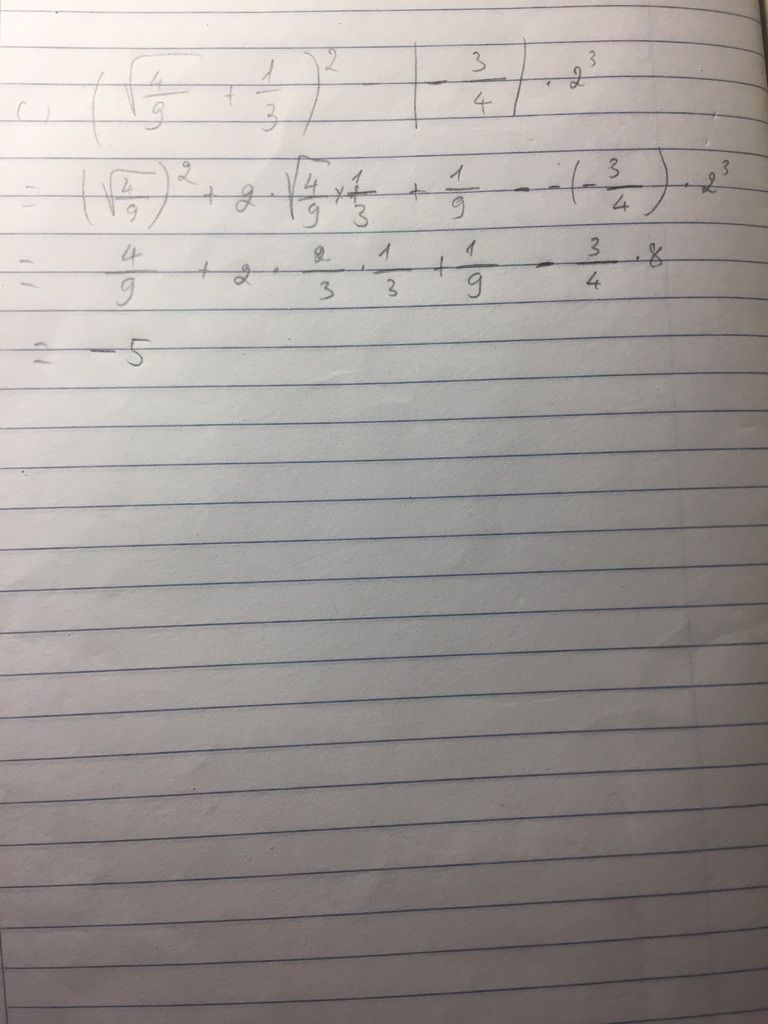 c) (√(4/9) + 1/3)² - |-3/4| . 2³
= (√(4/9))² + 2 . √(4/9) × 1/3 + 1/9 - -(-3/4) . 2³
= 4/9 + 2 . 2/3 . 1/3 + 1/9 - 3/4 . 8
= -5